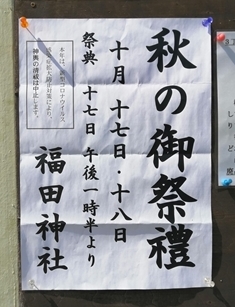 秋の御祭禮
十月 十七日・十八日
祭典 十七日 午後一時半より
本年は、新型コロナウイルス
感染症拡大防止対策に依り、
神輿の渡御は中止します。
福田神社